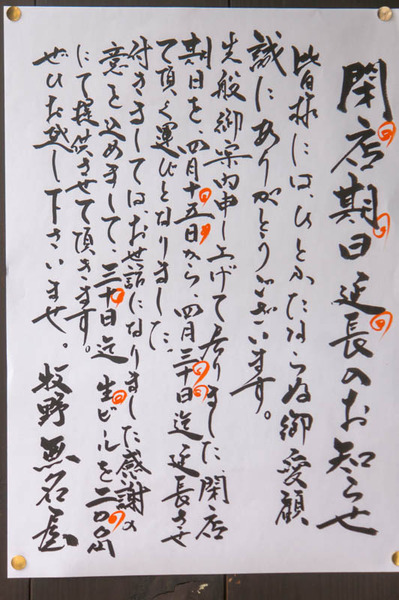 閉店期日延長のお知らせ
皆様には、ひとかたならぬ御愛顧
誠にありがとうございます。
先般御案内申し上げて居りました閉店
期日を、四月十五日から、四月三十日迄延長させ
て頂く運びとなりました
付きましてはお世話になりました感謝の
意を込めまして、三十日迄生ビールを二〇〇円
にて提供させて頂きます。
ぜひお越し下さいませ。
牧野無名屋